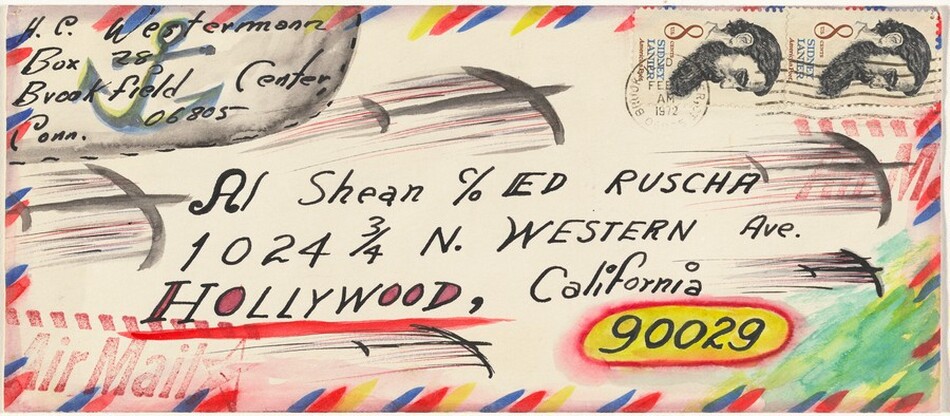 H. C. Westermann
Box 28
Brookfield Center,
Conn. 06805
8 CENTS
U.S.
SIDNEY
LANIER
American Poet
8 CENTS
U.S.
SIDNEY
LANIER
American Poet
FEB
AM
1972
Al Shean c/o ED RUSCHA
1024 3/4 N. WESTERN Ave.
HOLLYWOOD, California
90029
Air Mail
Air M